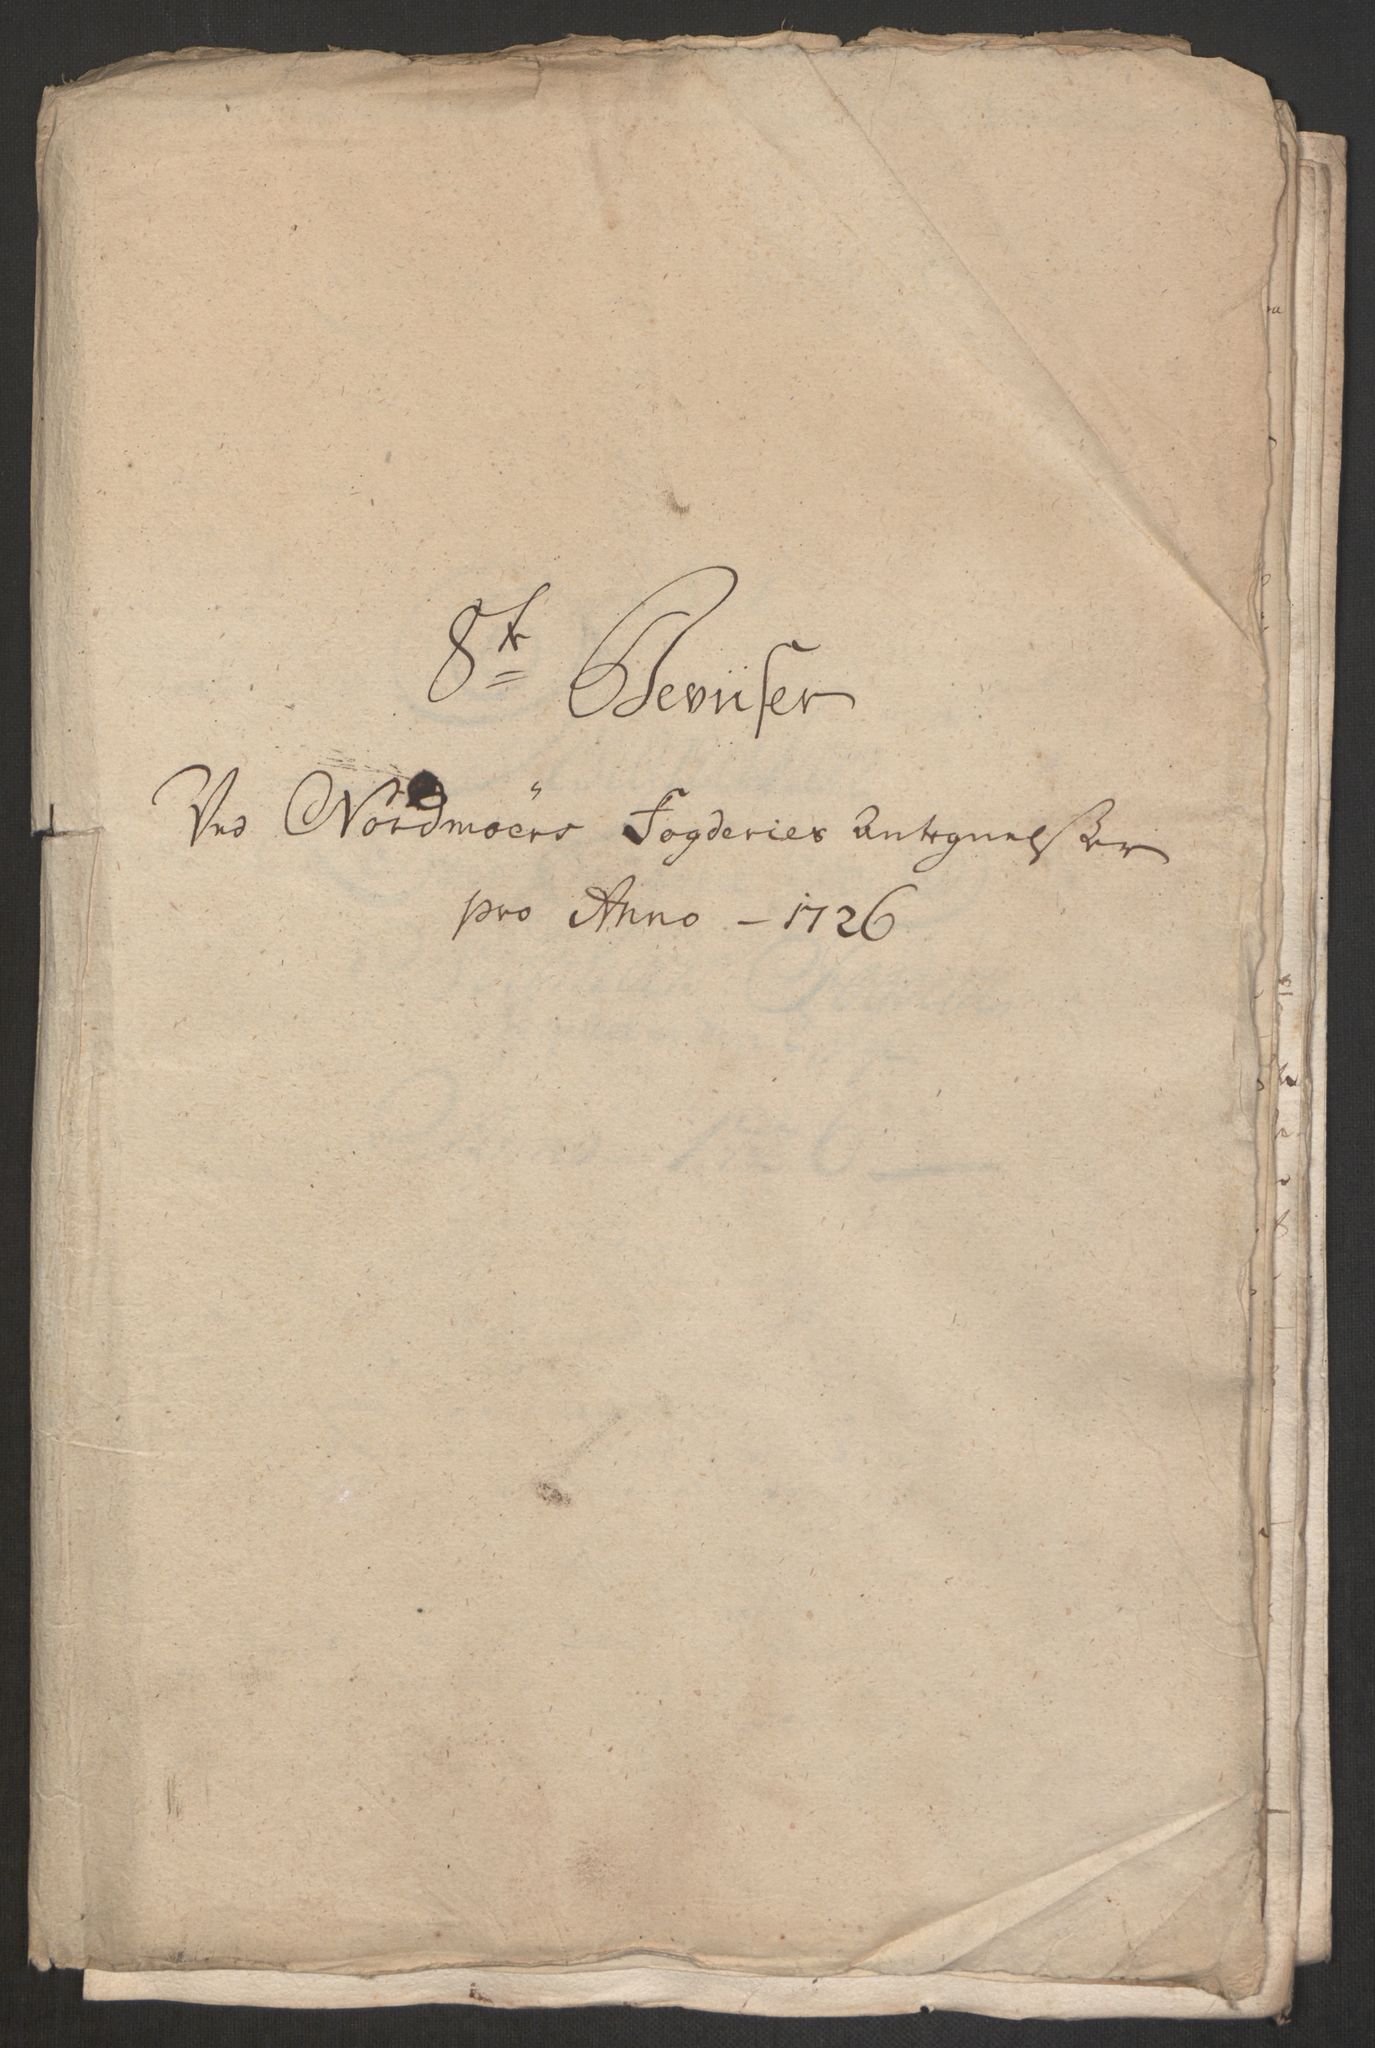 8 st Beviiser
Ved Nordmöers Fogderies Antegnelsser
pro Anno - 1726